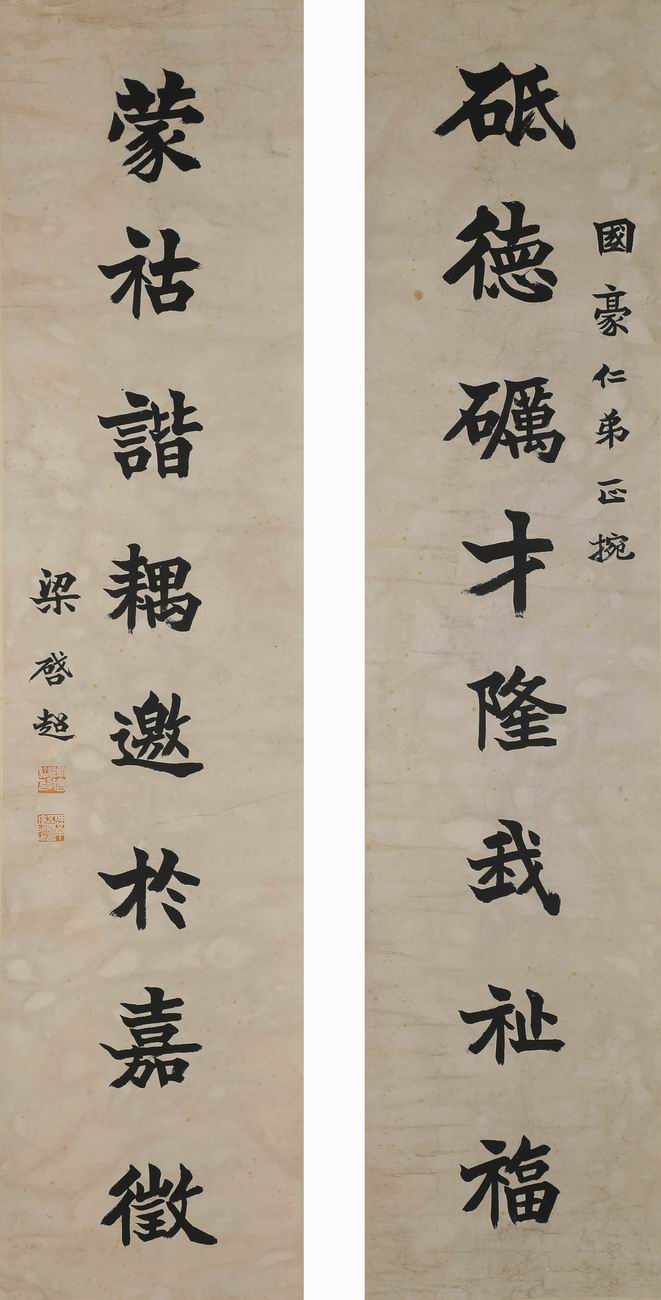 國豪仁弟正捥
砥德礪才隆我祉福
蒙祜諧耦邀於嘉徵
梁啓超